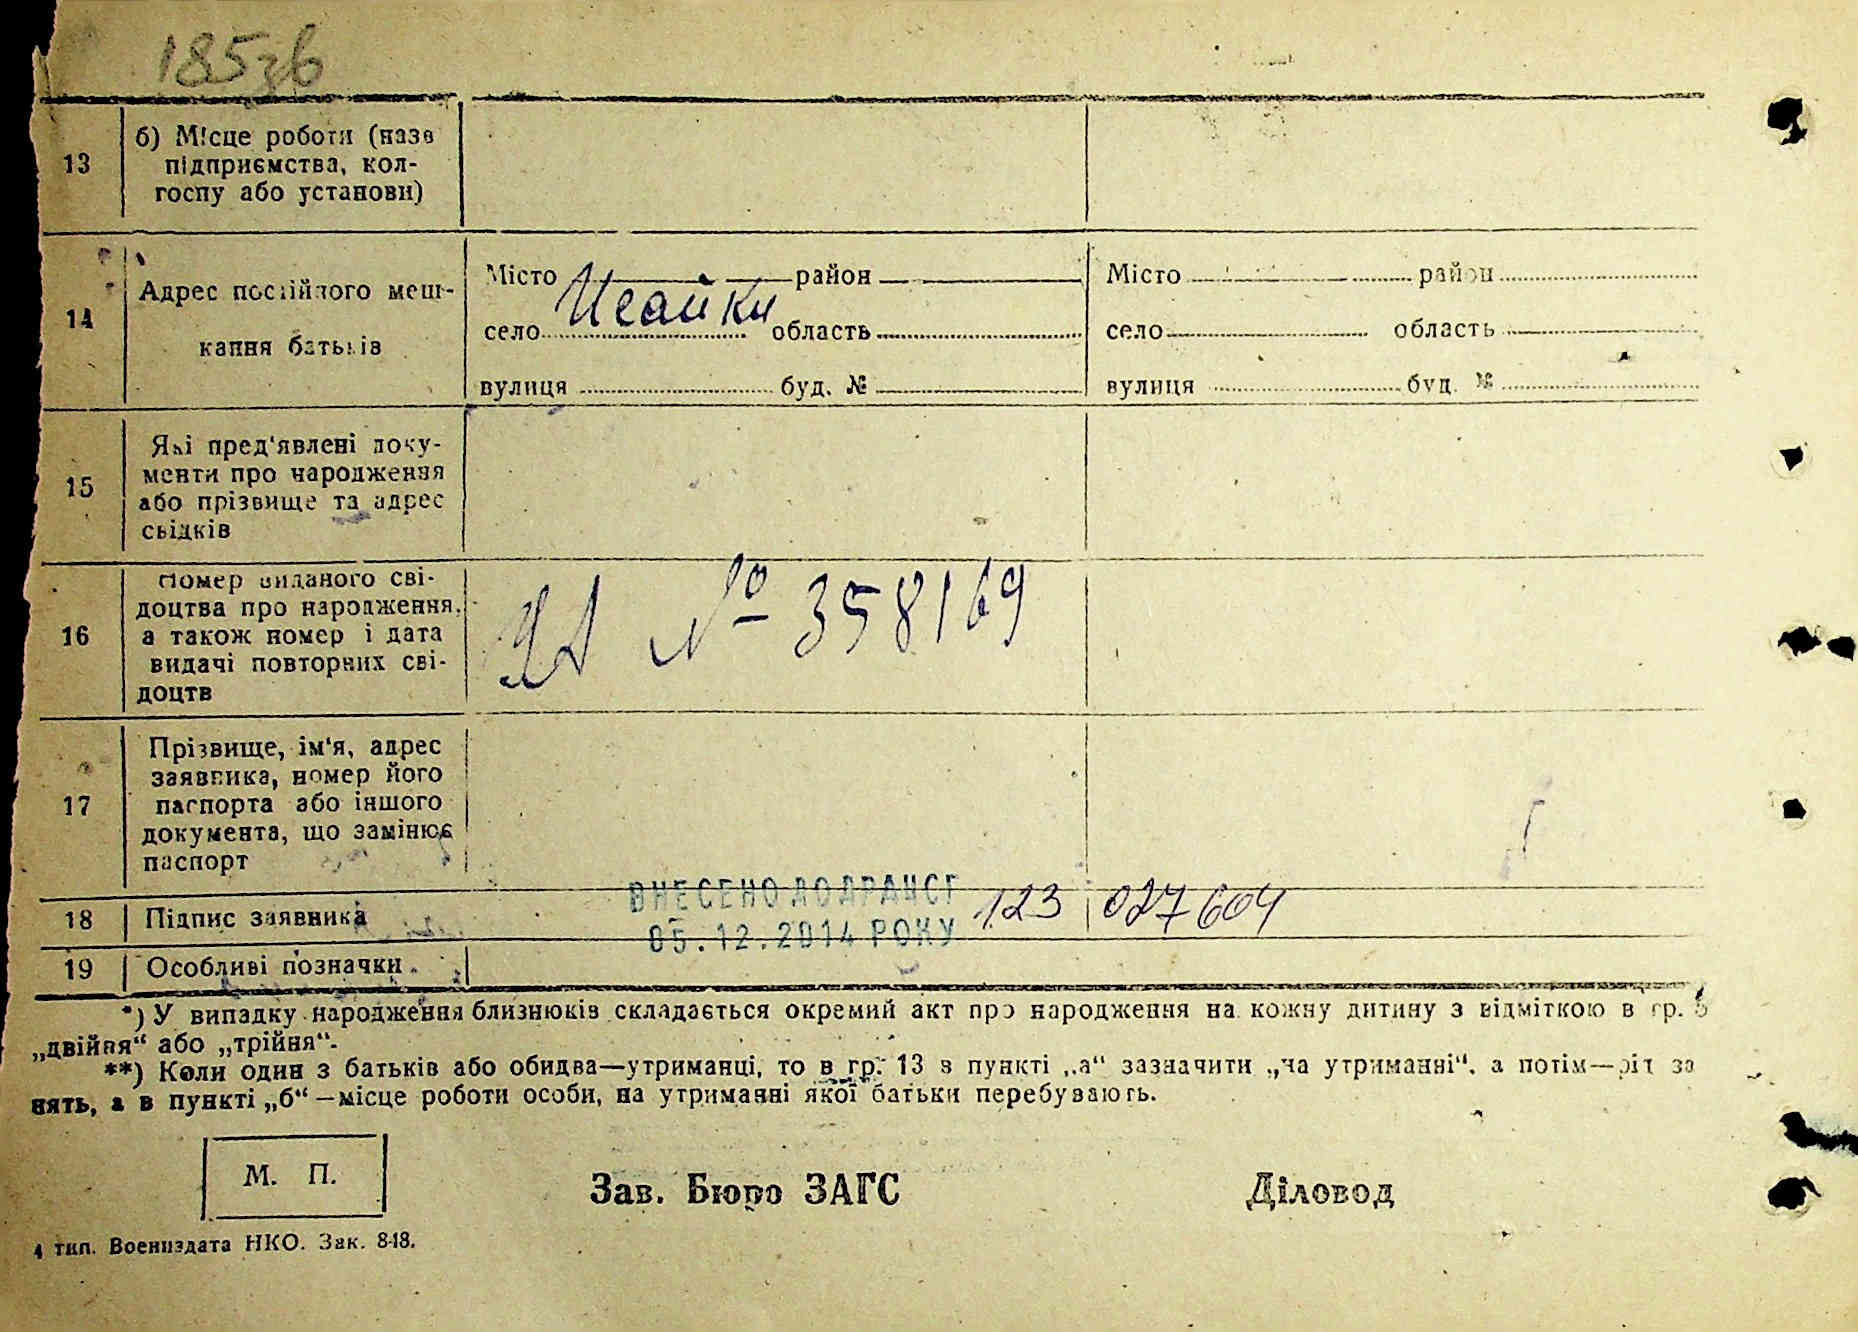 185зв
13
б) Місце роботи (назв
підприємства, кол-
госпу або установи)
14
Адрес постійного меш-
кання батьків
Місто район
село Исайки область
вулиця буд. №
Місто район
село область
вулиця буд. №
15
Які пред'явлені доку-
менти про народження
або прізвище та адрес
свідків
16
Номер виданого сві-
доцтва про народження,
а також номер і дата
видачі повторних сві-
доцтв
№ 358169
17
Прізвище, ім'я, адрес
заявника, номер його
паспорта або іншого
документа, що замінює
паспорт
18
Підпис заявника
ВНЕСЕНО ДО ДРАЦСГ
05.12.2014 РОКУ
123 027604
19
Особливі позначки
*) У випадку народження близнюків складається окремий акт про народження на кожну дитину з відміткою в гр. 5
„двійня“ або „трійня“.
**) Коли один з батьків або обидва—утриманці, то в гр. 13 в пункті „а“ зазначити „на утриманні“, а потім—рід за
нять, а в пункті „б“—місце роботи особи, на утриманні якої батьки перебувають.
М. П.
Зав. Бюро ЗАГС
Діловод
4 тип. Воениздата НКО. Зак. 848.